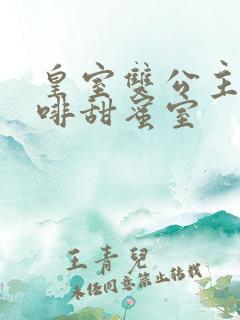 皇室雙公主
啡甜蜜室
王青兒
未經同意禁止轉載